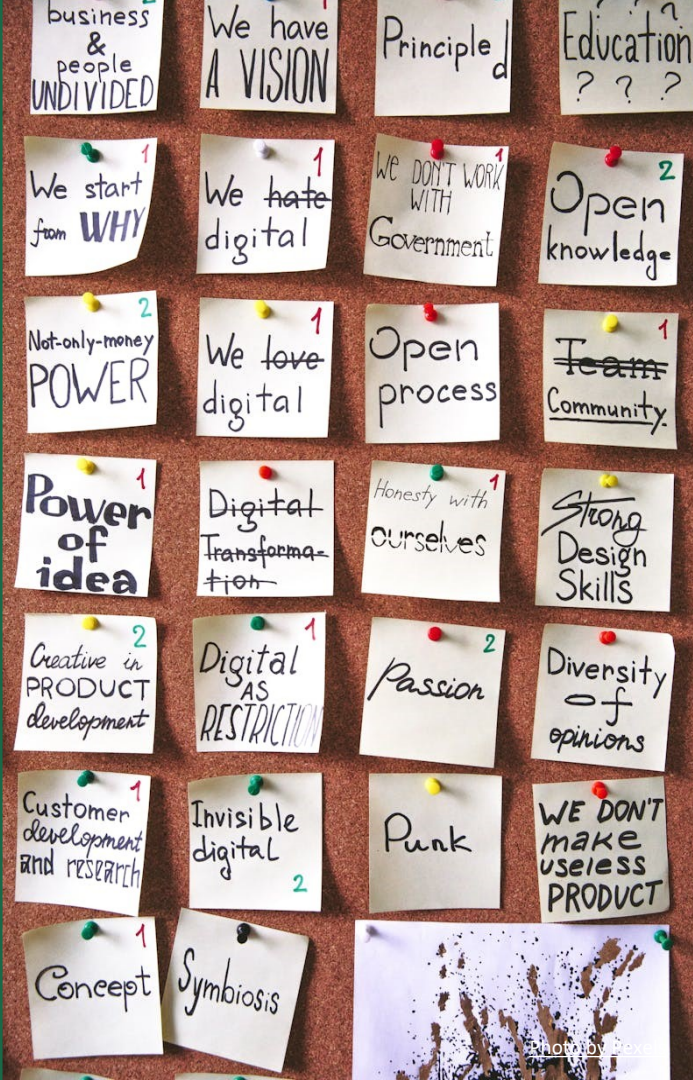 business
&
people
UNDIVIDED
2
We have
A VISION
1
Principled
Education
? ? ?
We start
from WHY
1
We hate
digital
1
We DON'T WORK
WITH
Government
1
Open
knowledge
2
Not-only-money
POWER
2
We love
digital
1
Open
process
Team
Community
1
Power
of
idea
1
Digital
Transforma-
tion
Honesty with
ourselves
1
Strong
Design
Skills
Creative in
PRODUCT
development
2
Digital
AS
RESTRICTION
1
Passion
2
Diversity
of
opinions
Customer
development
and research
1
Invisible
digital
2
Punk
WE DON'T
make
useless
PRODUCT
Concept
1
Symbiosis
Photo by Pexels